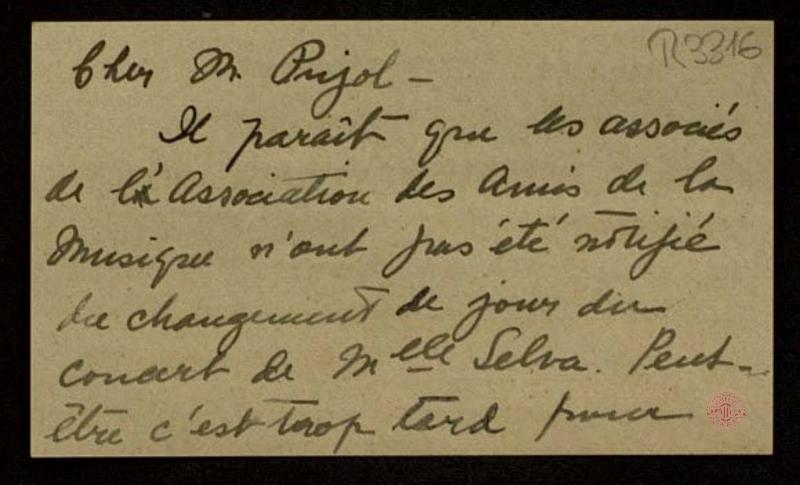 R3316
Cher M. Pujol –
Il paraît que les associés
de l'Association des Amis de la
Musique n'ont pas été notifié
du changement de jour du
concert de Mlle Selva. Peut-
être c'est trop tard pour